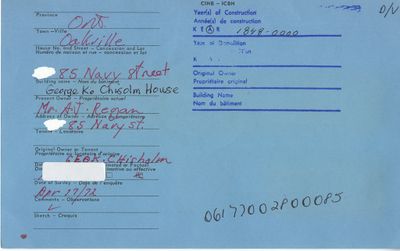 Province
Ont
Town - Ville
Oakville
House No. and Street - Concession and Lot
Numéro de maison et rue - concession et lot
85 Navy Street
Building name - Nom du bâtiment
George K. Chisolm House
Present Owner - Propriétaire actuel
Mr. A.J.
Address of Owner - Adresse du propriétaire
85 Navy St.
Tenant - Locataire
Original Owner or Tenant
Propriétaire ou locataire d'origine
Chisholm
Date of Survey - Date de l'enquête
Apr 17/72
Comments - Observations
Sketch - Croquis
CIHB - ICBH
D/V
Year(s) of Construction
Année(s) de construction
K E A R 1848-0000
Year of Demolition
K
Original Owner
Propriétaire original
Building Name
Nom du bâtiment
06177002800085